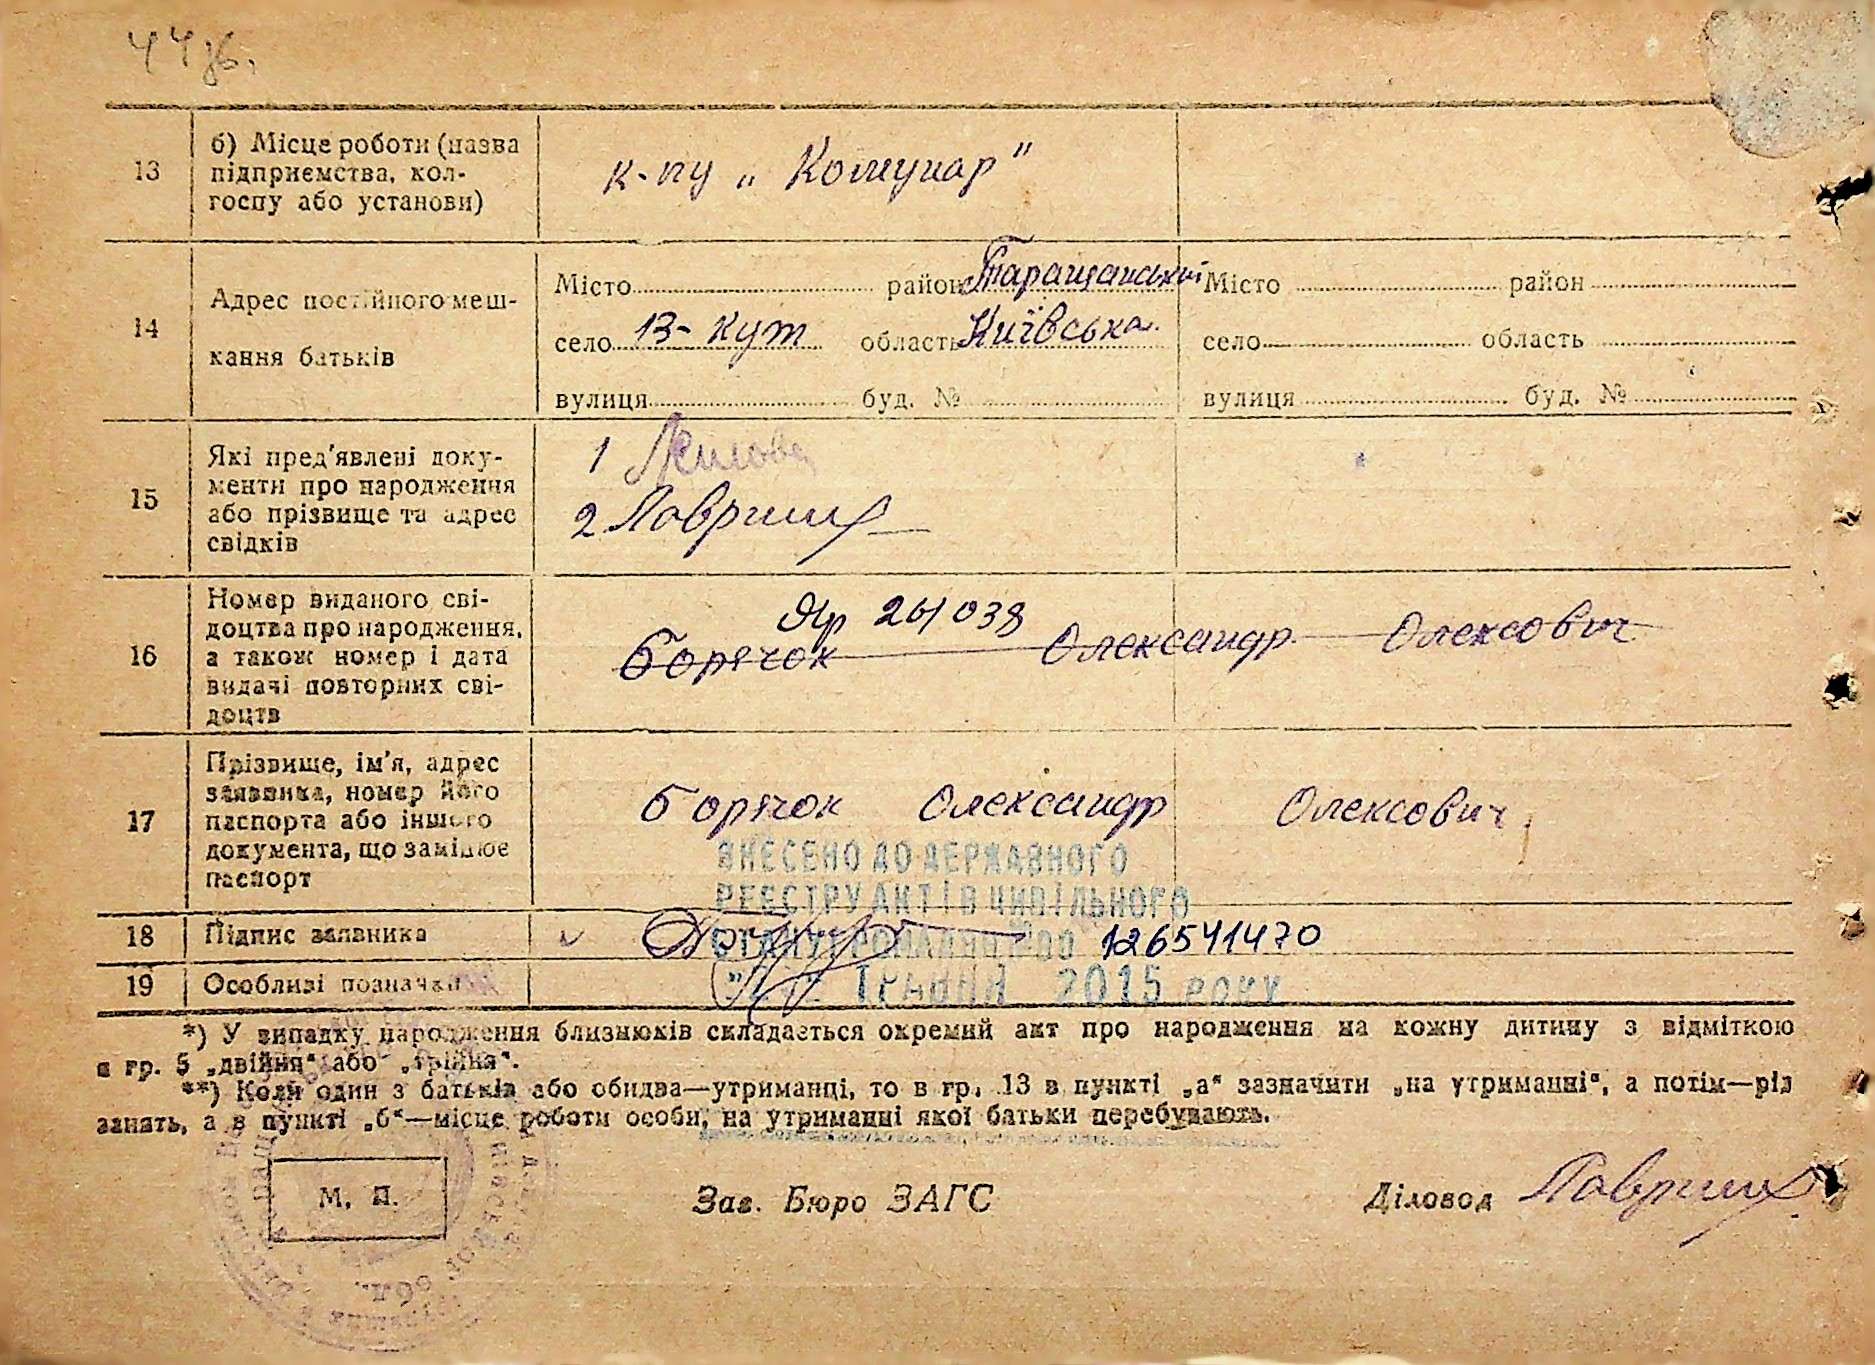 44 зв.
13
б) Місце роботи (назва
підприємства, кол-
госпу або установи)
к-пу „Комунар"
14
Адрес постійного меш-
кання батьків
Місто район Таращанський
село 13- кут область Київська
вулиця буд. №
Місто район
село область
вулиця буд. №
15
Які пред'явлені доку-
менти про народження
або прізвище та адрес
свідків
1
2 Лавриш
16
Номер виданого сві-
доцтва про народження,
а також номер і дата
видачі повторних сві-
доцтв
261038
Борячок Олександр Олексович
17
Прізвище, ім'я, адрес
заявника, номер його
паспорта або іншого
документа, що замінює
паспорт
Борячок Олександр Олексович
ВНЕСЕНО ДО ДЕРЖАВНОГО
РЕЄСТРУ АКТІВ ЦИВІЛЬНОГО
СТАНУ ГРОМАДЯН ПО 126541470
ТРАВНЯ 2015 РОКУ
18
Підпис заявника
19
Особливі позначки
*) У випадку народження близнюків складається окремий акт про народження на кожну дитину з відміткою
в гр. 5 „двійня" або „трійня".
**) Коли один з батьків або обидва—утриманці, то в гр. 13 в пункті „а" зазначити „на утриманні", а потім—рід
занять, а в пункті „б"—місце роботи особи, на утриманні якої батьки перебувають.
М. П.
Зав. Бюро ЗАГС
Діловод Лавриш
обл.